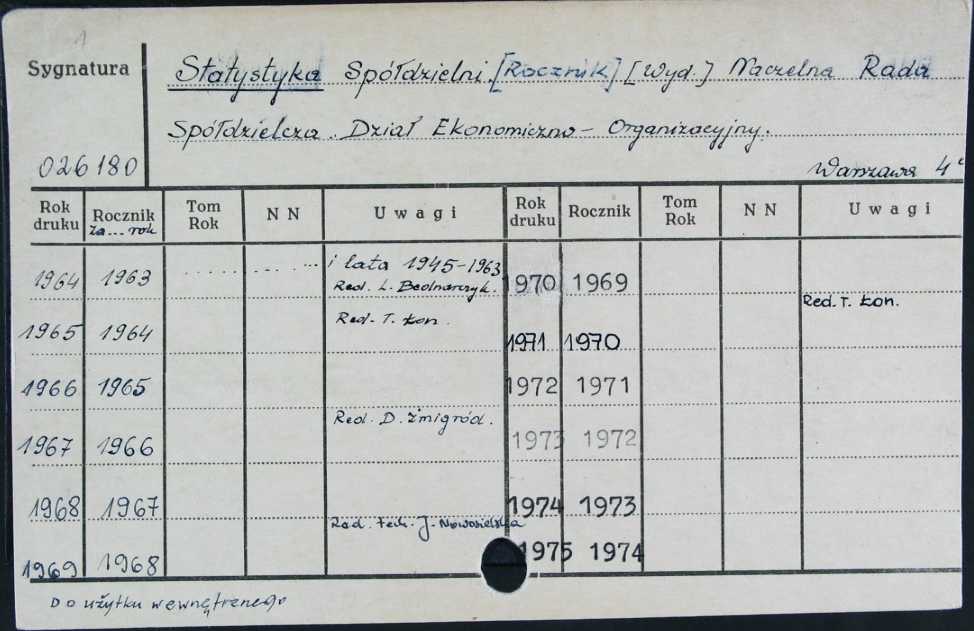 1
Sygnatura
Statystyka Spółdzielni. [Rocznik] [Wyd.] Naczelna Rada
Spółdzielcza. Dział Ekonomiczno-Organizacyjny.
026180
Warszawa 4°
Rok druku Rocznik za... rok Tom Rok NN Uwagi Rok druku Rocznik Tom Rok NN Uwagi
1964 1963 i lata 1945-1963 1970 1969
Red. L. Bednarczyk. Red. T. Łon.
1965 1964 Red. T. Łon. 1971 1970
1966 1965 1972 1971
1967 1966 Red. D. Żmigród. 1973 1972
1968 1967 1974 1973
Red. tech. J. Nowosielska
1969 1968 1975 1974
Do użytku wewnętrznego